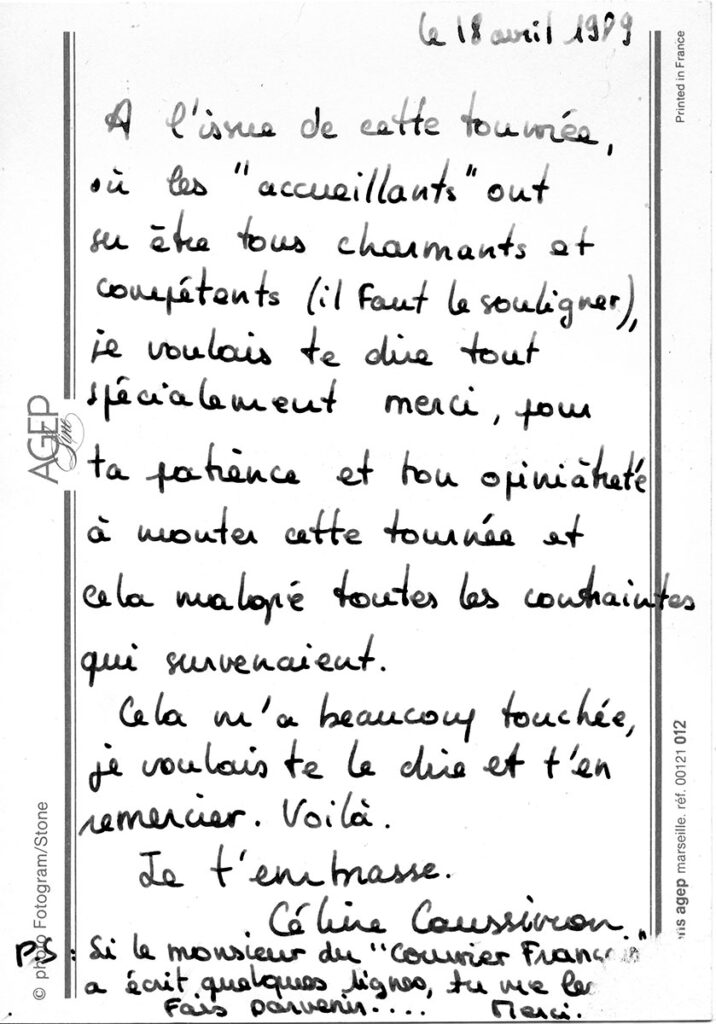 le 18 avril 1989
Printed in France
A l'issue de cette tournée,
où les "accueillants" ont
su être tous charmants et
compétents (il faut le souligner),
je voulais te dire tout
spécialement merci, pour
ta patience et ton opiniâtreté
à monter cette tournée et
cela malgré toutes les contraintes
qui survenaient.
Cela m'a beaucoup touchée,
je voulais te le dire et t'en
remercier. Voilà.
Je t'embrasse.
Céline Caussimon.
PS: Si le monsieur du "Courrier Français"
a écrit quelques lignes, tu me les
Fais parvenir.... Merci.
AGEP
Line
© photo Fotogram/Stone
agep marseille. réf. 00121 012